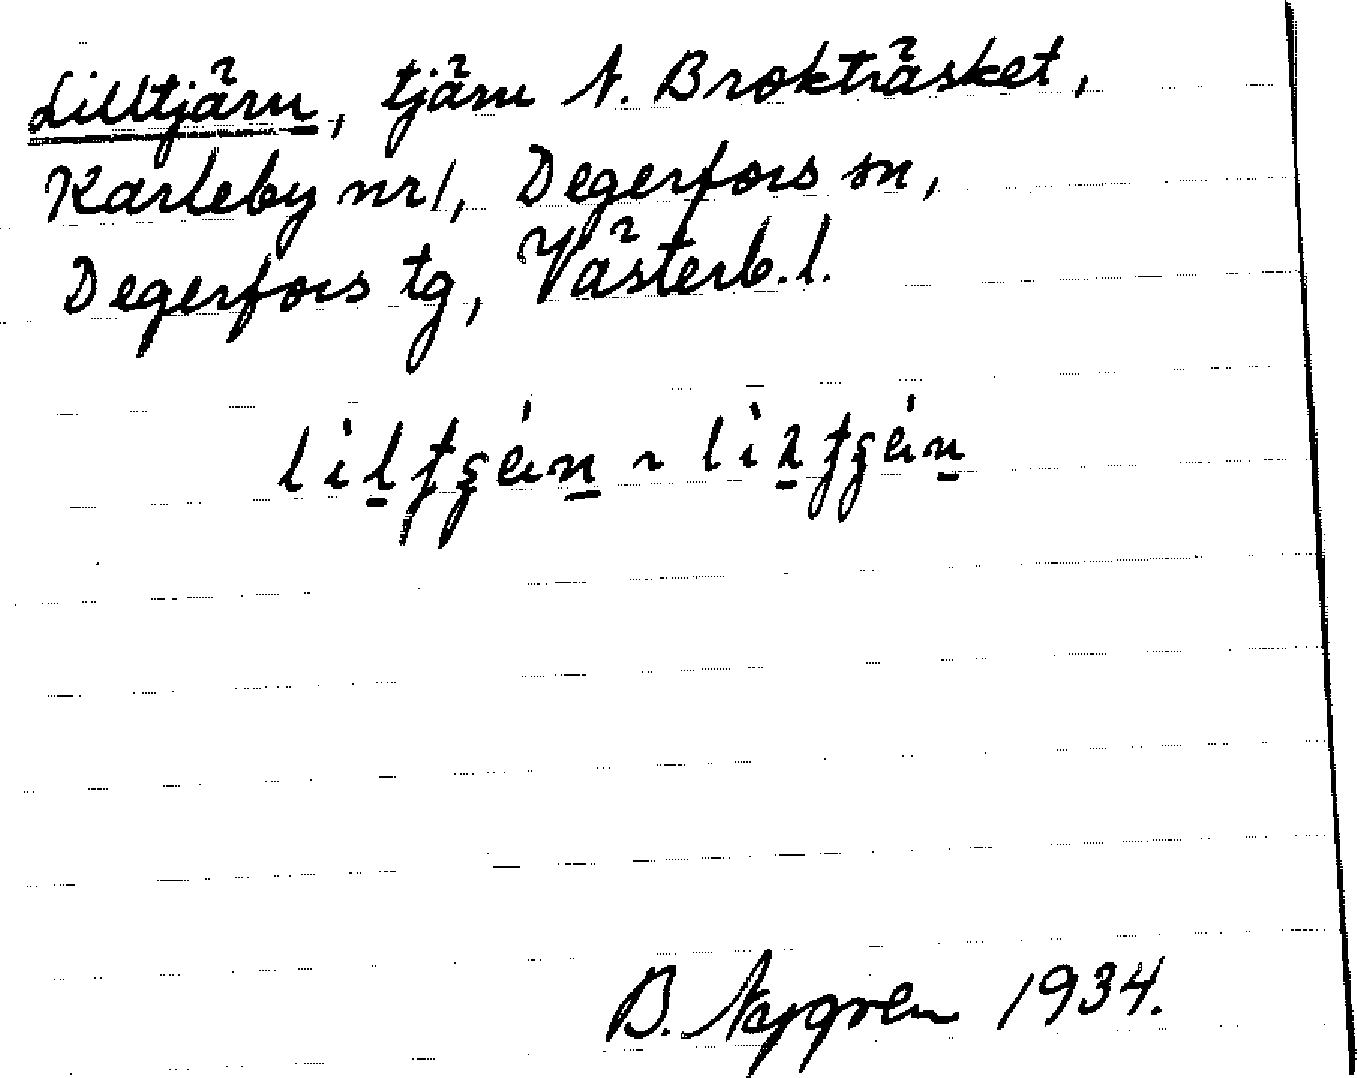 Lilltjärn, tjärn N. Brokträsket,
Karleby nr 1, Degerfors sn,
Degerfors tg, Västerb. l.
B. Nygren 1934.